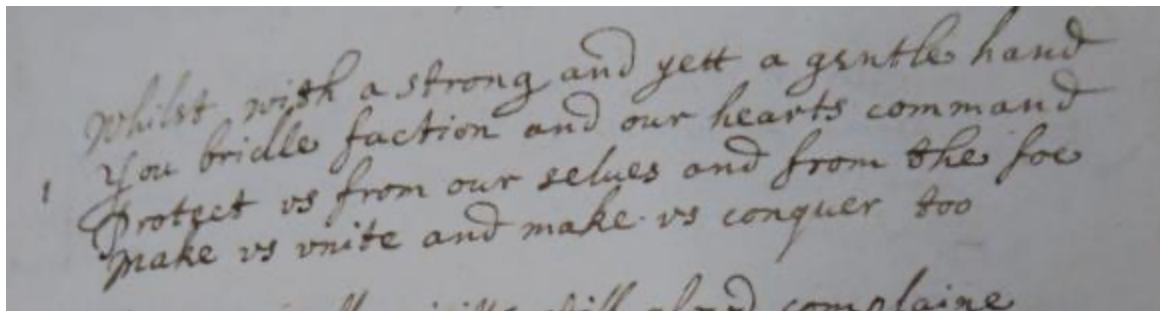 Whilst with a strong and yett a gentle hand
You bridle faction and our hearts command
1 Protect vs from our selues and from the foe
Make vs vnite and make vs conquer too
still aloud complaine